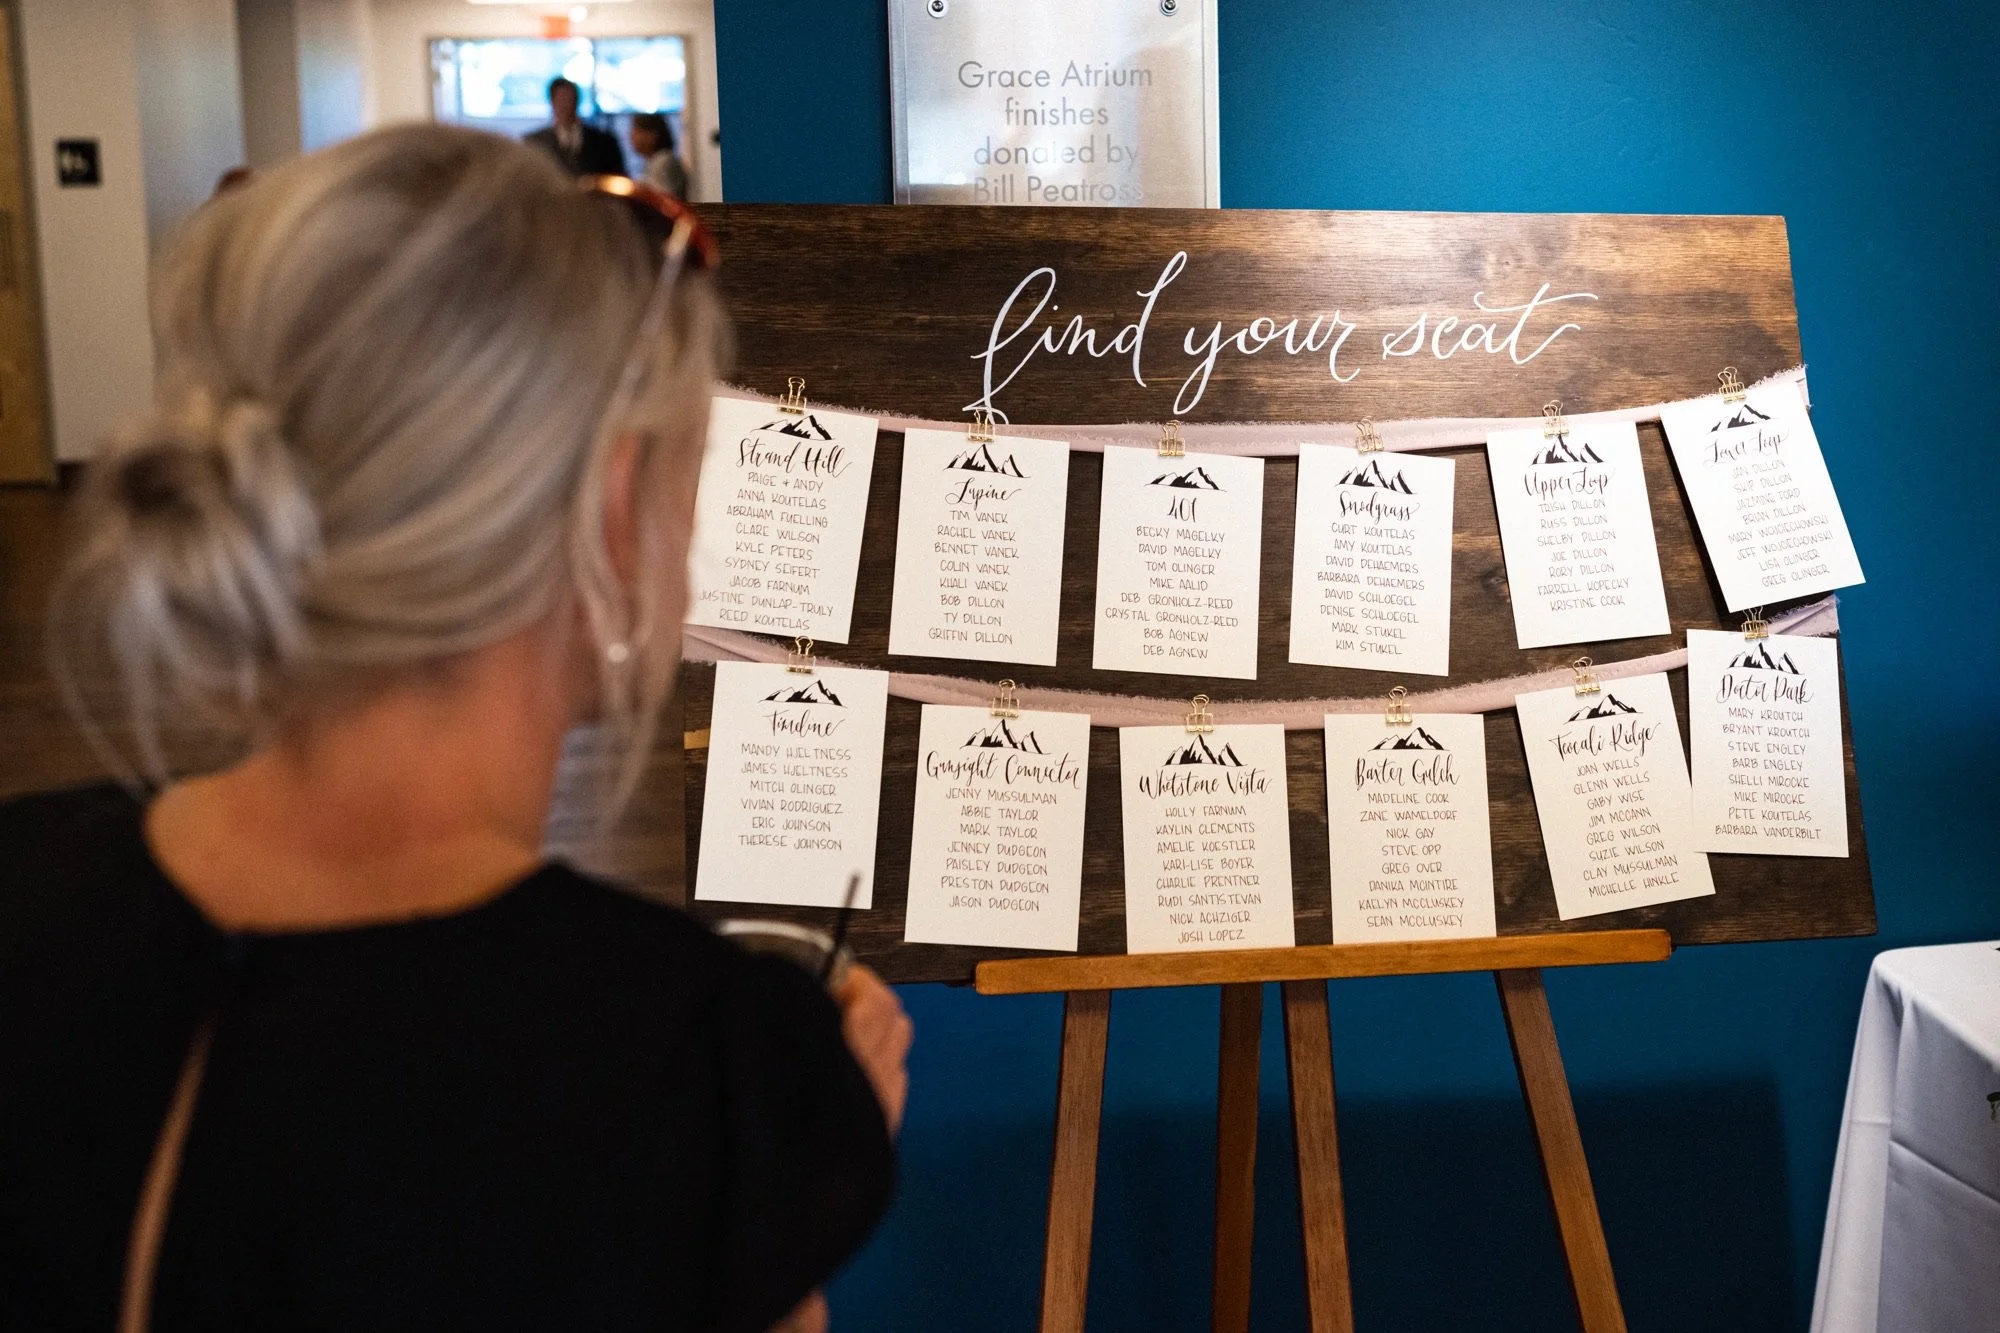 Grace Atrium
finishes
donated by
Bill Peatross
find your seat
Strand Hill
PAIGE + ANDY
ANNA KOUTELAS
ABRAHAM FUELLING
CLARE WILSON
KYLE PETERS
SYDNEY SEIFERT
JACOB FARNUM
JUSTINE DUNLAP-TRULY
REED KOUTELAS
Lupine
TIM VANEK
RACHEL VANEK
BENNET VANEK
COLIN VANEK
KHALI VANEK
BOB DILLON
TY DILLON
GRIFFIN DILLON
401
BECKY MAGELKY
DAVID MAGELKY
TOM OLINGER
MIKE AALID
DEB GRONHOLZ-REED
CRYSTAL GRONHOLZ-REED
BOB AGNEW
DEB AGNEW
Snodgrass
CURT KOUTELAS
AMY KOUTELAS
DAVID DEHAEMERS
BARBARA DEHAEMERS
DAVID SCHLOEGEL
DENISE SCHLOEGEL
MARK STUKEL
KIM STUKEL
Upper Loop
TRISH DILLON
RUSS DILLON
SHELBY DILLON
JOE DILLON
RORY DILLON
FARRELL KOPECKY
KRISTINE COOK
Lower Loop
JAN DILLON
SKIP DILLON
JAZMINE FORD
BRIAN DILLON
MARY WOJCIECHOWSKI
JEFF WOJCIECHOWSKI
LISA OLINGER
GREG OLINGER
Timeline
MANDY HJELTNESS
JAMES HJELTNESS
MITCH OLINGER
VIVIAN RODRIGUEZ
ERIC JOHNSON
THERESE JOHNSON
Gunsight Connector
JENNY MUSSULMAN
ABBIE TAYLOR
MARK TAYLOR
JENNEY DUDGEON
PAISLEY DUDGEON
PRESTON DUDGEON
JASON DUDGEON
Whetstone Vista
HOLLY FARNUM
KAYLIN CLEMENTS
AMELIE KOESTLER
KARI-LISE BOYER
CHARLIE PRENTNER
RUDI SANTISTEVAN
NICK ACHZIGER
JOSH LOPEZ
Baxter Gulch
MADELINE COOK
ZANE WAMELDORF
NICK GAY
STEVE OPP
GREG OVER
DANIKA MCINTIRE
KAELYN MCCLUSKEY
SEAN MCCLUSKEY
Teocali Ridge
JOAN WELLS
GLENN WELLS
GABY WISE
JIM MCCANN
GREG WILSON
SUZIE WILSON
CLAY MUSSULMAN
MICHELLE HINKLE
Doctor Park
MARY KROUTCH
BRYANT KROUTCH
STEVE ENGLEY
BARB ENGLEY
SHELLI MIROCKE
MIKE MIROCKE
PETE KOUTELAS
BARBARA VANDERBILT